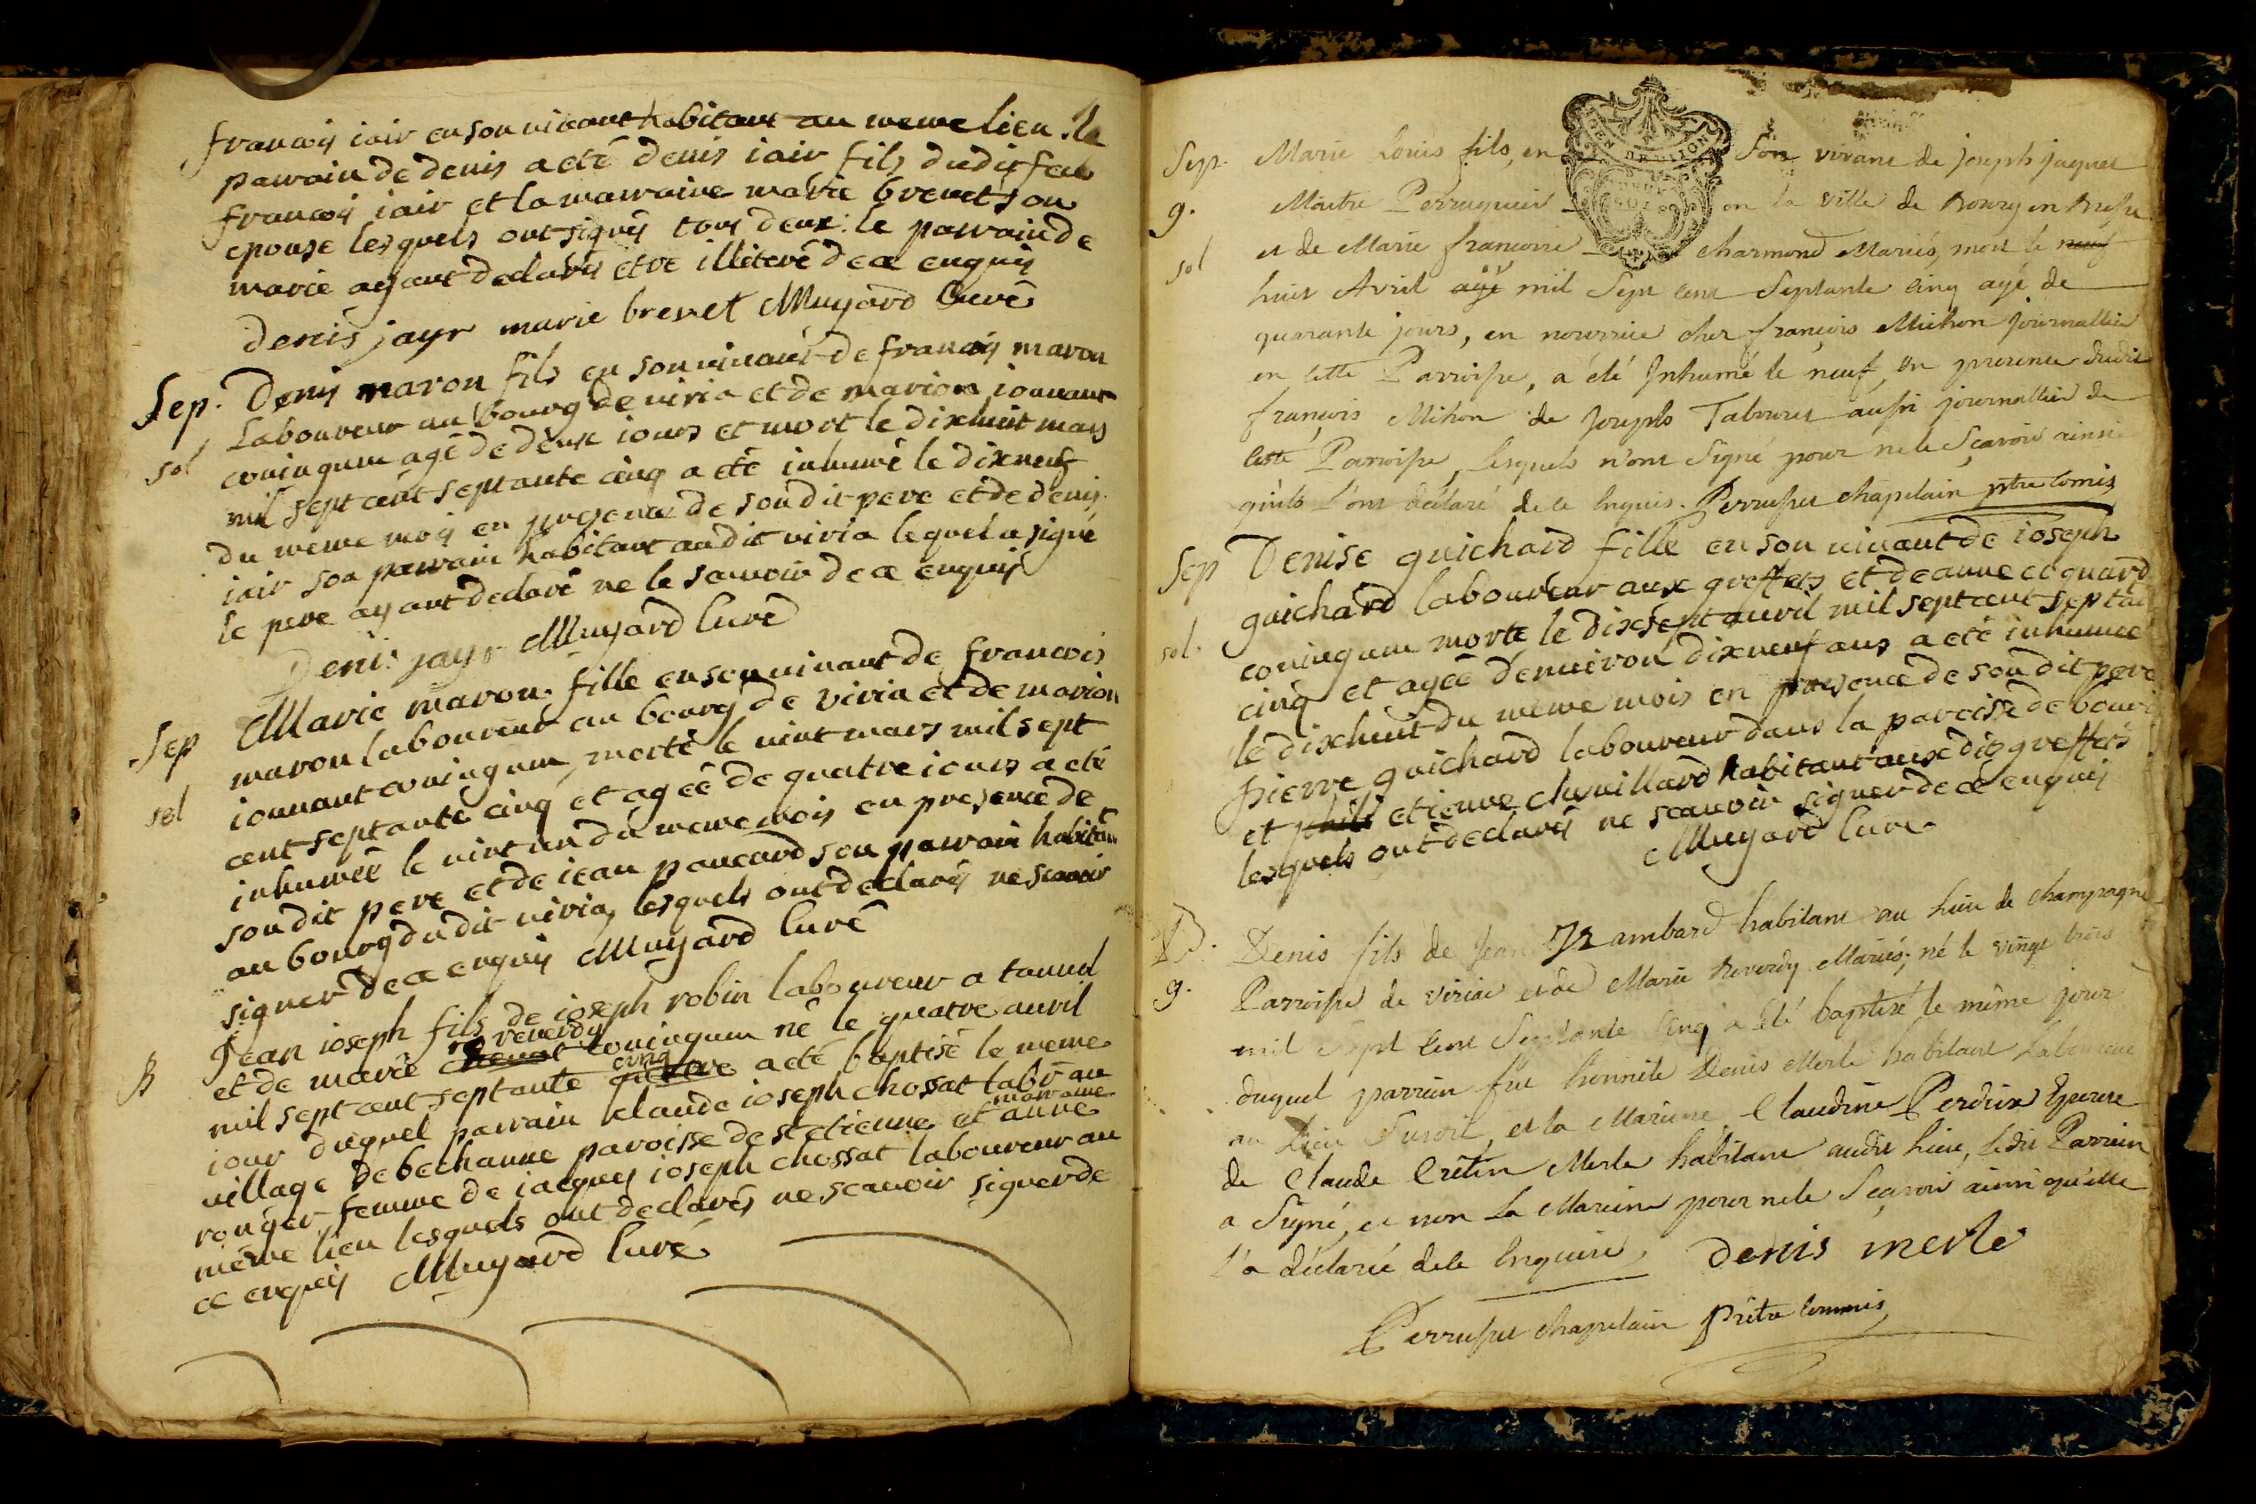 francois iair en son vivant habitant au meme lieu. le
parrain de denis a eté denis iair fils dudit feu
francois iair et la marraine marie brevet son
epouse lesquels ont signés tous deux: le parrain de
marie ayant declarés etre illiteré de ce enquis
denis jayr marie brevet Mugard Curé
Sep. Denis maron fils en son vivant de francois maron
Laboureur au bourg de viria et de marion iounant
sol coniugum agé de deux iours et mort le dixhuit mars
mil sept cent septante cinq a eté inhumé le dixneuf
du meme mois en presence de son dit pere et de denis
iair son parrain habitant audit viria lequel a signé
le pere ayant declaré ne le scavoir de ce enquis
Denis jayr Mugard Curé
Sep Marie maron fille en son vivant de francois
maron laboureur au bourg de viria et de marion
sol iounant coniugum, morte le vint mars mil sept
cent septante cinq et agée de quatre iours a eté
inhumée le vint un du meme mois en presence de
son dit pere et de iean pancard son parrain habitant
au bourg du dit viria, lesquels ont declarés ne scavoir
signer de ce enquis Mugard Curé
B Jean ioseph fils de ioseph robin laboureur a tannul
reverdy
et de marie coniugum né le quatre avril
cinq
mil sept cent septante a eté baptisé le meme
iour duquel parrain klaude ioseph chossat labr au
marraine
village de bechanne paroisse de st etienne et anne
ronger femme de iacques ioseph chossat laboureur au
même lieu lesquels ont declarés ne scavoir signer de
ce enquis Mugard Curé
GEN DE DIJON
Sep. Marie Louis fils, en Son vivant de joseph jaquet
g. Maitre Perruquier en la ville de Bourg en Bresse
sol et de Marie françoise charmond Mariés, mort le neuf
huit Avril agé mil Sept cent Septante cinq agé de
quarante jours, en nourrice chez françois Michon journallier
en cette Parroisse, a été Inhumé le neuf, en presence dudit
françois Mihon de Joseph Tabouret aussi journallier de
cette Parroisse, lesquels n'ont Signé pour ne le Sçavoir ainsi
qu'ils l'ont déclaré de ce Enquis. Perrusset chapelain ptre comis
Sep Denise guichard fille en son vivant de ioseph
guichard laboureur aux greffets et de anne coquard
sol. coniugum morte le dixsept avril mil sept cent septante
cinq et agée d'environ dixneuf ans a eté inhumée
le dixhuit du meme mois en presence de son dit pere
pierre guichard laboureur dans la paroisse de bourg
et etienne chevillard habitant aux dits greffets
lesquels ont declarés ne scavoir signer de ce enquis
Mugard Curé
B. Denis fils de Jean Rambard habitant au lieu de Champagne
g. Parroisse de viriat et de Marie Reverdy Mariés, né le vingt trois
mil Sept Cent Septante Cinq a été baptisé le même jour
duquel parrain fut honnête Denis Merle habitant Laboureur
au Lieu et la Mareine Claudine Perdrix Epouse
de Claude Crêtin Merle habitant audit lieu, ledit Parrain
a Signé, et non la Mareine pour ne le Sçavoir ainsi qu'elle
l'a déclarée de ce Enquise, Denis merle
Perrusset chapelain Prêtre Commis